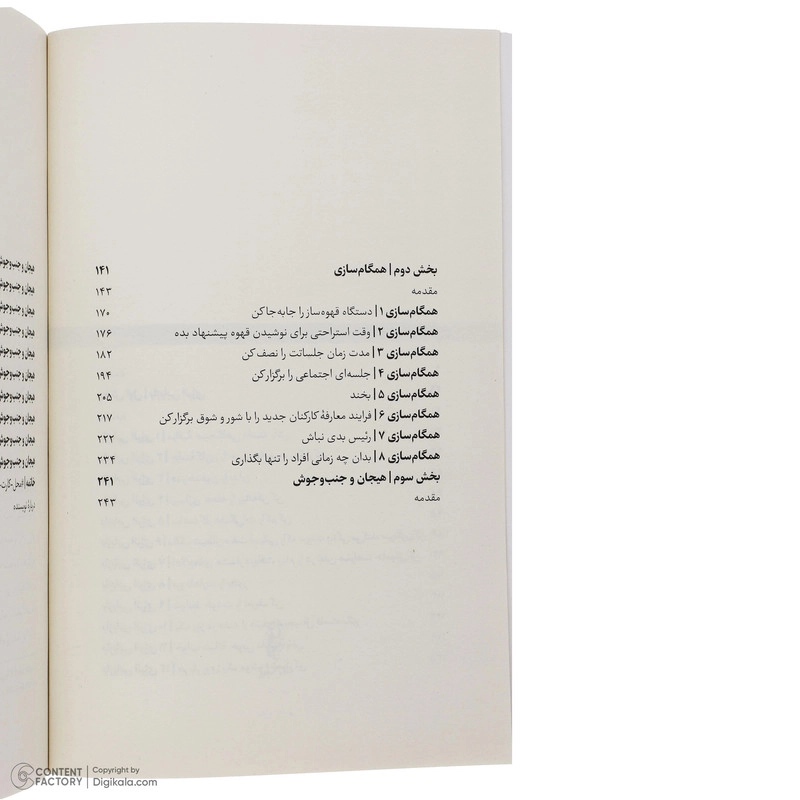 بخش دوم | همگام‌سازی ۱۴۱
مقدمه ۱۴۳
همگام‌سازی ۱ | دستگاه قهوه‌ساز را جابه‌جا کن ۱۷۰
همگام‌سازی ۲ | وقت استراحتی برای نوشیدن قهوه پیشنهاد بده ۱۷۶
همگام‌سازی ۳ | مدت زمان جلساتت را نصف کن ۱۸۲
همگام‌سازی ۴ | جلسه‌ای اجتماعی را برگزار کن ۱۹۴
همگام‌سازی ۵ | بخند ۲۰۵
همگام‌سازی ۶ | فرایند معارفهٔ کارکنان جدید را با شور و شوق برگزار کن ۲۱۷
همگام‌سازی ۷ | رئیس بدی نباش ۲۲۲
همگام‌سازی ۸ | بدان چه زمانی افراد را تنها بگذاری ۲۳۴
بخش سوم | هیجان و جنب‌وجوش ۲۴۱
مقدمه ۲۴۳
هیجان و جنب‌وجوش
هیجان و جنب‌وجوش
هیجان و جنب‌وجوش
هیجان و جنب‌وجوش
هیجان و جنب‌وجوش
هیجان و جنب‌وجوش
هیجان و جنب‌وجوش
هیجان و جنب‌وجوش
هیجان و جنب‌وجوش
هیجان و جنب‌وجوش
خاتمه |
دربارهٔ نویسنده
CONTENT FACTORY
Copyright by
Digikala.com